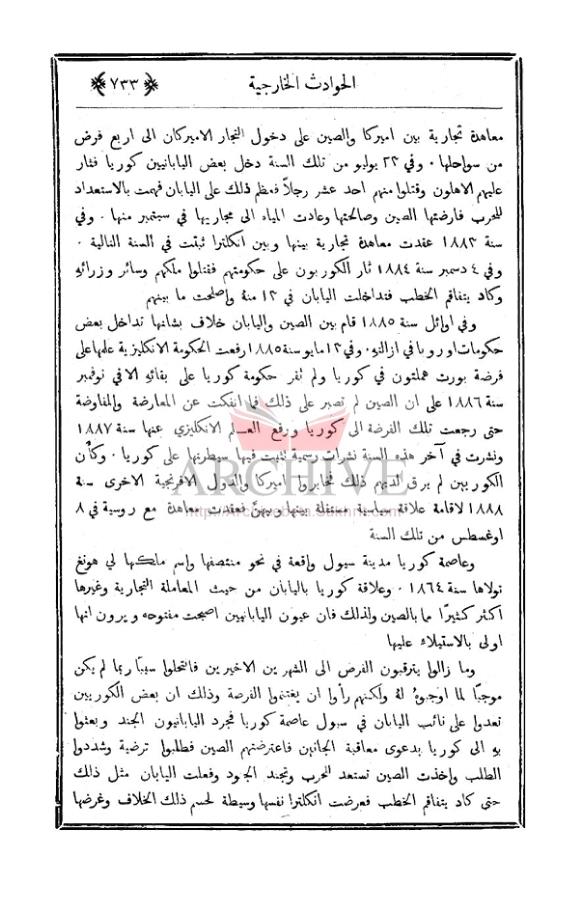 الحوادث الخارجية
﴿٧٣٣﴾
معاهدة تجارية بين اميركا والصين على دخول التجار الاميركان الى اربع فرض
من سواحلها ٠ وفي ٢٣ يوليو من تلك السنة دخل بعض اليابانيين كوريا فثار
عليهم الاهلون وقتلوا منهم احد عشر رجلاً فعظم ذلك على اليابان فهمت بالاستعداد
للحرب فارضتها الصين وصالحتها وعادت المياه الى مجاريها في سبتمبر منها ٠ وفي
سنة ١٨٨٣ عقدت معاهدة تجارية بينها وبين انكلترا ثبتت في السنة التالية ٠
وفي ٤ دسمبر سنة ١٨٨٤ ثار الكوريون على حكومتهم فقتلوا ملكهم وسائر وزرائهِ
وكاد يتفاقم الخطب فتداخلت اليابان في ١٢ منهُ واصلحت ما بينهم
وفي اوائل سنة ١٨٨٥ قام بين الصين واليابان خلاف بشانها تداخل بعض
حكومات اوروبا في ازالتهِ ٠ وفي ١٢ مايو سنة ١٨٨٥ رفعت الحكومة الانكليزية علمها على
فرضة بورت هملتون في كوريا ولم تقر حكومة كوريا على بقائهِ الا في نوفمبر
سنة ١٨٨٦ على ان الصين لم تصبر على ذلك فما انفكت عن المعارضة والمفاوضة
حتى رجعت تلك الفرضة الى كوريا ورفع العلم الانكليزي عنها سنة ١٨٨٧
ونشرت في آخر هذه السنة نشرات رسمية تثبت فيها سيطرتها على كوريا ٠ وكأن
الكوريين لم يرق لديهم ذلك فخابروا اميركا والدول الافرنجية الاخرى سنة
١٨٨٨ لاقامة علاقة سياسية مستقلة بينها وبينهنَّ فعقدت معاهدة مع روسية في ٨
اوغسطس من تلك السنة
وعاصمة كوريا مدينة سيول واقعة في نحو منتصفها واسم ملكها لي هونغ
تولاها سنة ١٨٦٤ ٠ وعلاقة كوريا باليابان من حيث المعاملة التجارية وغيرها
اكثر كثيرًا مما بالصين ولذلك فان عيون اليابانيين اصبحت مفتوحه ويرون انها
اولى بالاستيلاء عليها
وما زالوا يترقبون الفرص الى الشهرين الاخيرين فانتحلوا سببًا ربما لم يكن
موجبًا لما اوجبوهُ لهُ ولكنهم رأوا ان يغتنموا الفرصة وذلك ان بعض الكوريين
تعدوا على نائب اليابان في سيول عاصمة كوريا فجرد اليابانيون الجند وبعثوا
بهِ الى كوريا بدعوى معاقبة الجانين فاعترضتهم الصين فطلبوا ترضية وشددوا
الطلب واخذت الصين تستعد للحرب وتجند الجنود وفعلت اليابان مثل ذلك
حتى كاد يتفاقم الخطب فعرضت انكلترا نفسها وسيطة لحسم ذلك الخلاف وغرضها
ARCHIVE
http://Archivebeta.Sakhrit.com